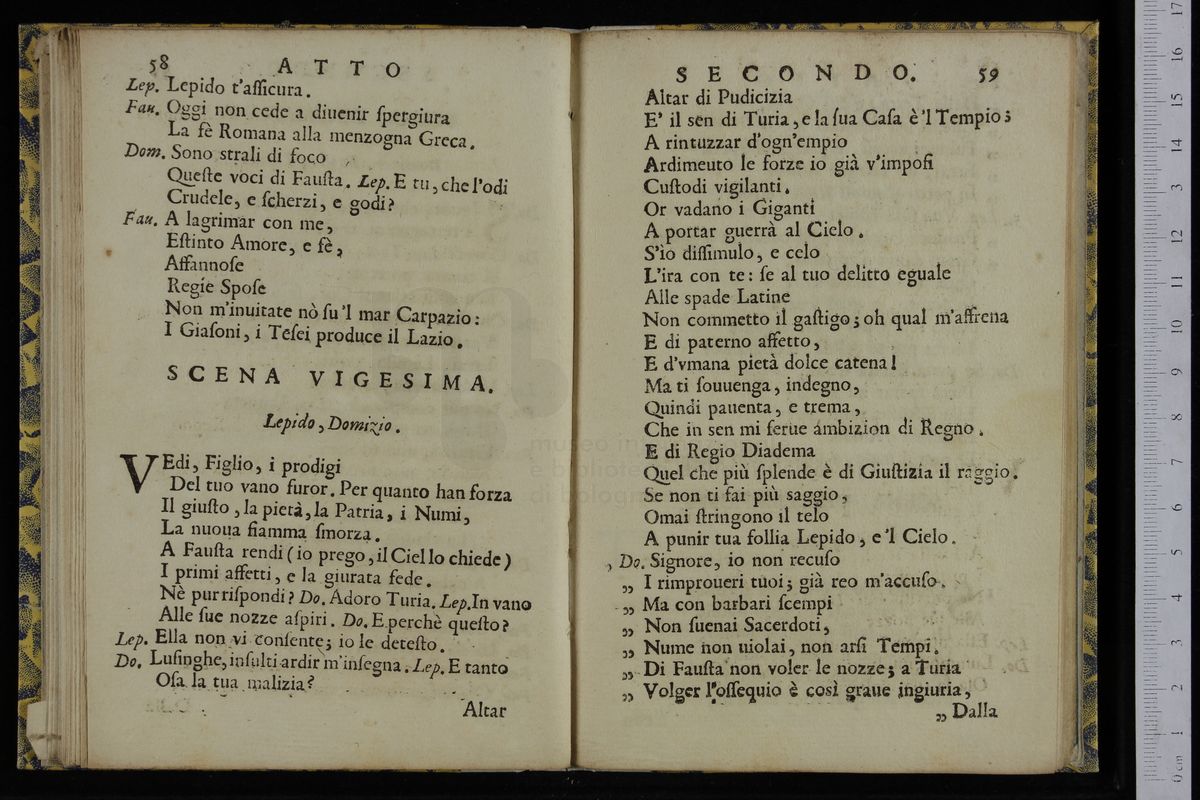 58 ATTO
Lep. Lepido t'aſſicura.
Fau. Oggi non cede a diuenir ſpergiura
La fè Romana alla menzogna Greca.
Dom. Sono strali di foco
Queſte voci di Fauſta. Lep. E tu, che l'odi
Crudele, e ſcherzi, e godi?
Fau. A lagrimar con me,
Eſtinto Amore, e fè,
Affannoſe
Regie Spoſe
Non m'inuitate nò ſu'l mar Carpazio:
I Giaſoni, i Teſei produce il Lazio.
SCENA VIGESIMA.
Lepido, Domizio.
VEdi, Figlio, i prodigi
Del tuo vano furor. Per quanto han forza
Il giuſto, la pietà, la Patria, i Numi,
La nuoua fiamma ſmorza.
A Fauſta rendi (io prego, il Ciel lo chiede)
I primi affetti, e la giurata fede.
Nè pur riſpondi? Do. Adoro Turia. Lep. In vano
Alle ſue nozze aſpiri. Do. E perchè queſto?
Lep. Ella non vi conſente; io le deteſto.
Do. Luſinghe, inſulti ardir m'inſegna. Lep. E tanto
Oſa la tua malizia?
Altar
SECONDO. 59
Altar di Pudicizia
E' il sen di Turia, e la ſua Caſa è 'l Tempio;
A rintuzzar d'ogn'empio
Ardimeuto le forze io già v'impoſi
Cuſtodi vigilanti.
Or vadano i Giganti
A portar guerrà al Cielo.
S'io diſſimulo, e celo
L'ira con te: ſe al tuo delitto eguale
Alle spade Latine
Non commetto il gaſtigo; oh qual m'affrena
E di paterno affetto,
E d'vmana pietà dolce catena!
Ma ti ſouuenga, indegno,
Quindi pauenta, e trema,
Che in sen mi ferue ambizion di Regno.
E di Regio Diadema
Quel che più ſplende è di Giuſtizia il raggio.
Se non ti fai più saggio,
Omai ſtringono il telo
A punir tua follia Lepido, e 'l Cielo.
, Do. Signore, io non recuſo
„ I rimproueri tuoi; già reo m'accuſo.
„ Ma con barbari ſcempi
„ Non ſuenai Sacerdoti,
„ Nume non uiolai, non arſi Tempi.
„ Di Fauſta non voler le nozze; a Turia
„ Volger l'oſſequio è così graue ingiuria,
„ Dalla